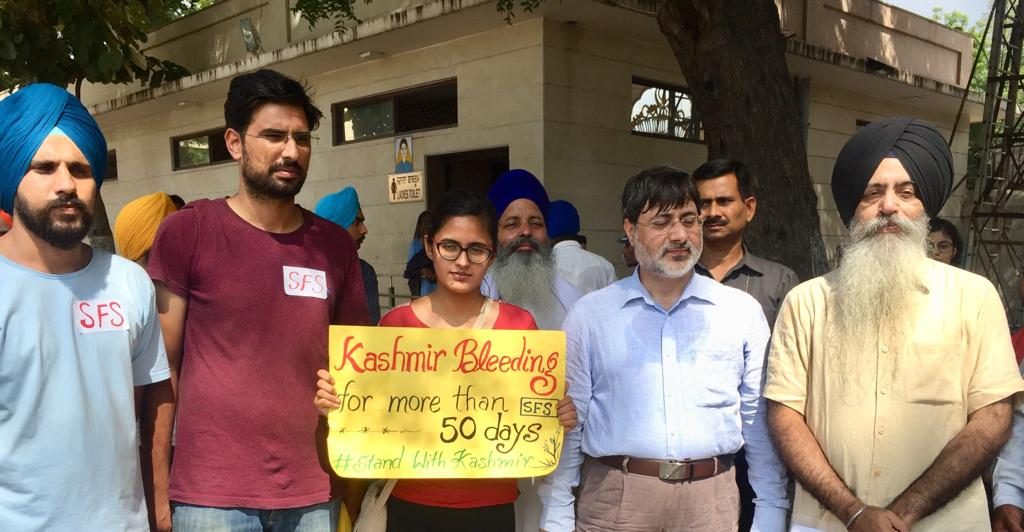 SFS
SFS
Kashmir Bleeding
for more than SFS
50 days
#Stand With Kashmir
LADIES TOILET